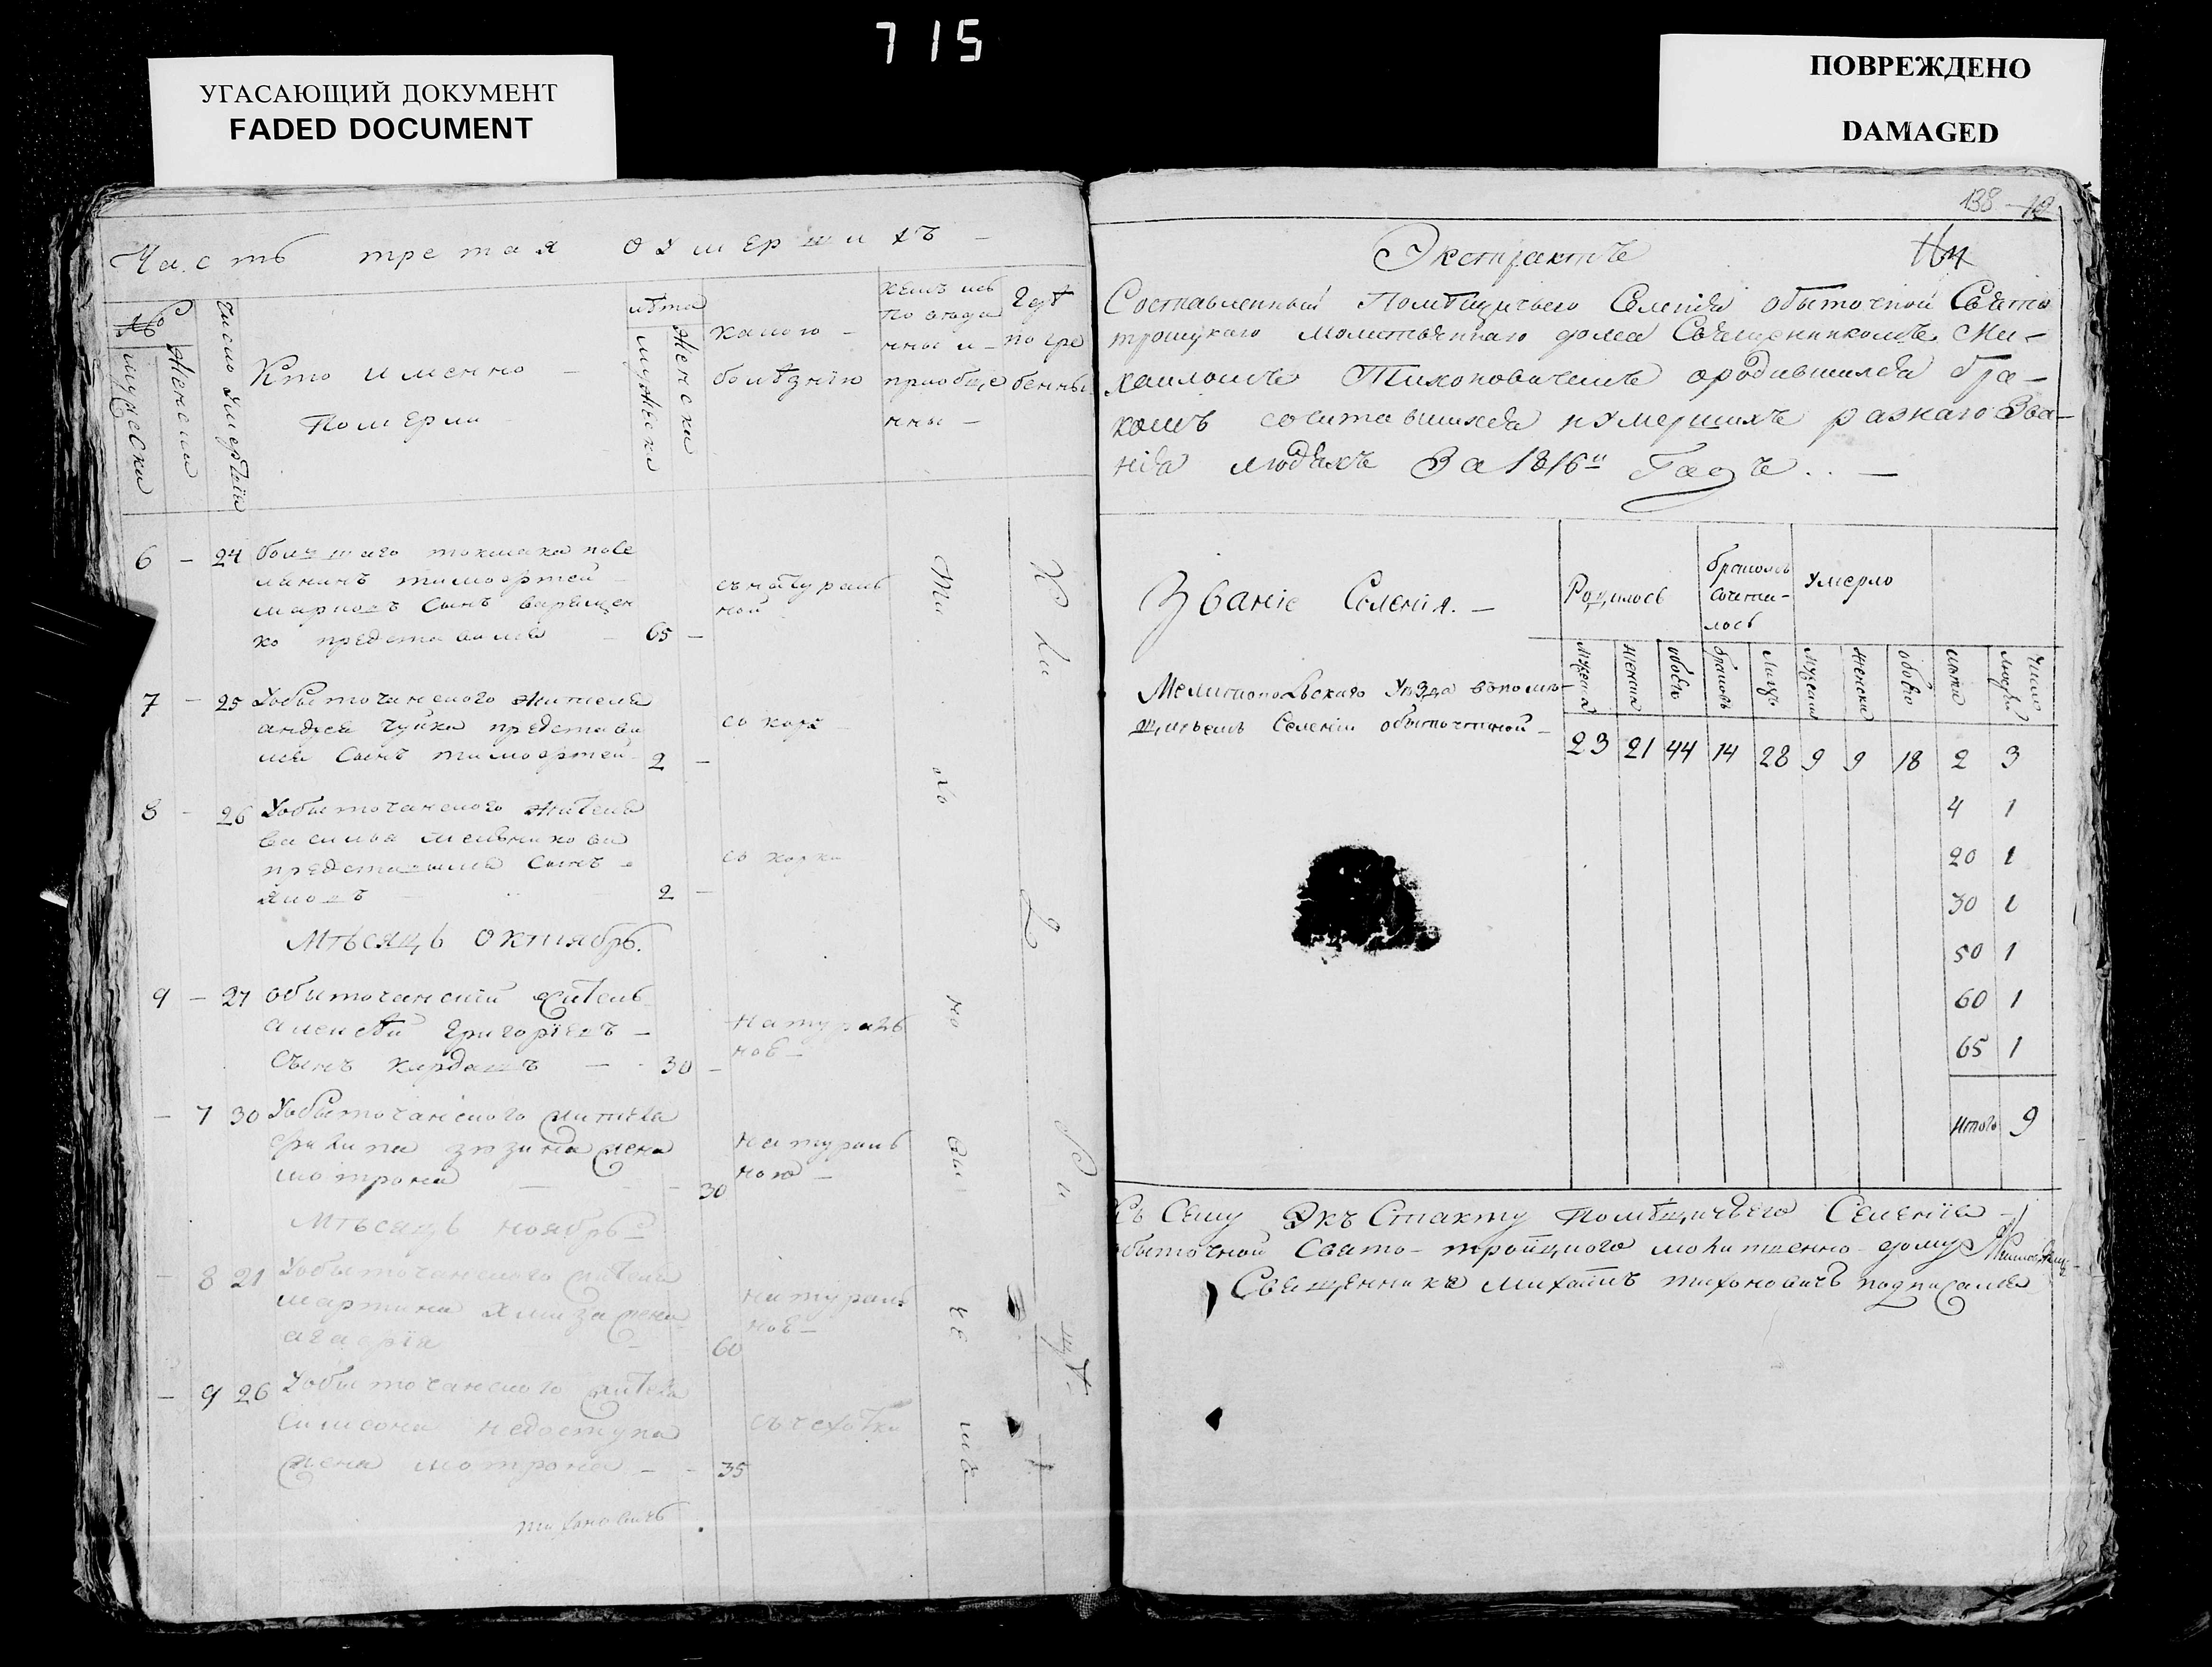 715
УГАСАЮЩИЙ ДОКУМЕНТ
FADED DOCUMENT
ПОВРЕЖДЕНО
DAMAGED
Часть третая оумершихъ
№
мужеска
Женски
число умертвія
Кто именно
Померли
лѣта
мужеска
Женски
какою
болѣзнію
кемъ исъ
по веда
нны и
приобще
нны
Гдѣ
погре
бенны
6 - 24 болшаго токмака посе
лянинъ тимофтей
марковъ Сынъ
ко представился - 65 -
съ натураль
ной
7 - 25 Уобыточанского Жителя
андрея чуйка представи
лся Сынъ тимофтей 2 -
съ коре
8 - 26 Уобыточанского Жителя
василья мельникова
представился Сынъ
яковъ 2 -
съ корки
Мѣсяцъ Октиябрь.
9 - 27 обыточанскій житель
алексѣй Григоріевъ -
Сынъ кардашъ - 30 -
натураль
ное
- 7 30 Уобыточанского жителя
филипа зюзина жена
мотрона - 30
натураль
ною
Мѣсяцъ ноябрь
- 8 21 Уобыточанского жителя
мартина жена
агафія 60
натураль
ное
- 9 26 Уобыточанского жителя
Симеона недоступа
жена мотрона - 35
съчехотки
Ти хо но ви че мъ
тихоновичъ
138
Экстрактъ
Составленный Помѣщичьего Селенія обыточной Свято
троицкаго молитвеннаго дома Священникомъ Ми-
хаиломъ Тихоновичемъ ородившихся бра-
комъ сочитавшихся иумершихъ разнаго Зва-
нія людяхъ За 1816й Годъ
Званіе Селенія. -
Родилось
бракомъ
сочета-
лось
Умерло
мужеска
женска
обоего
браковъ
лицъ
мужеска
женска
обоего
лѣта
Число
людей
Мелитопольскаго Уѣзда вопомѣ-
щичьемъ Селеніи обыточинной -
23 21 44 14 28 9 9 18 2 3
4 1
20 1
30 1
50 1
60 1
65 1
Итого 9
Къ Сему Экъ Стракту помѣщичьего Селенія -
обыточной Свято-троицкого молитвенно дому
Священникъ михаилъ тихоновичъ подписался